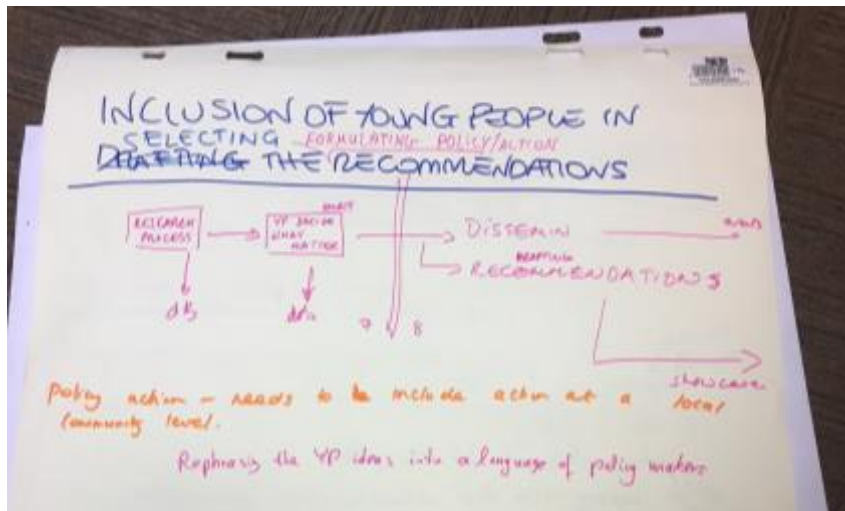 INCLUSION OF YOUNG PEOPLE IN
SELECTING FORMULATING POLICY/ACTION
DRAFTING THE RECOMMENDATIONS
RESEARCH
PROCESS
YP DECIDE
WHAT
MATTER
DISSEMIN
DRAFTING
RECOMMENDATIONS
data
7 8
showcase
Policy action – needs to include action at a local
community level.
Rephrasing the YP ideas into a language of policy makers